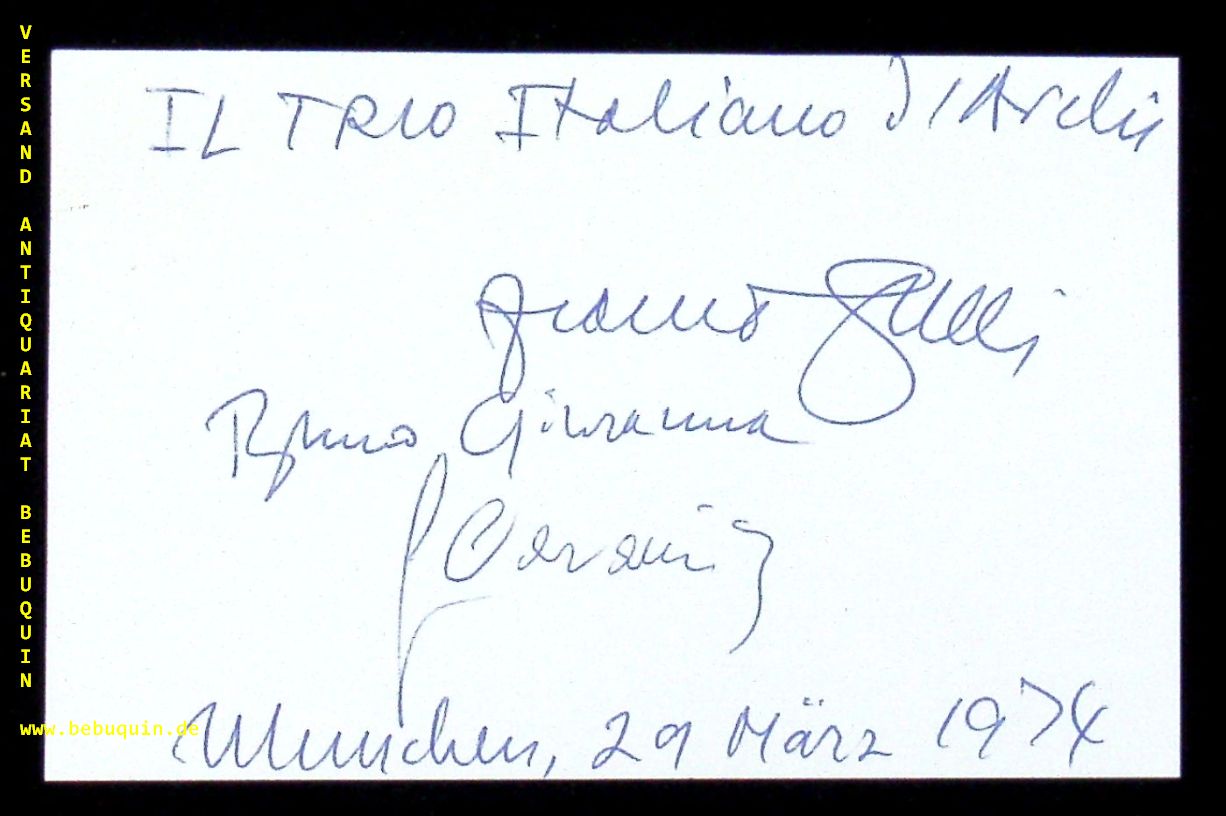 VERSAND ANTIQUARIAT BEBUQUIN
www.bebuquin.de
IL TRIO Italiano d'Archi
Franco Gulli
Bruno Giuranna
Caramia
München, 29 März 1974